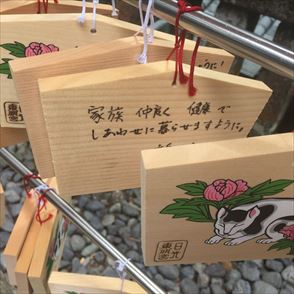 うに!
家族 仲良く 健康で
しあわせに暮らせますように。
日光
東照宮